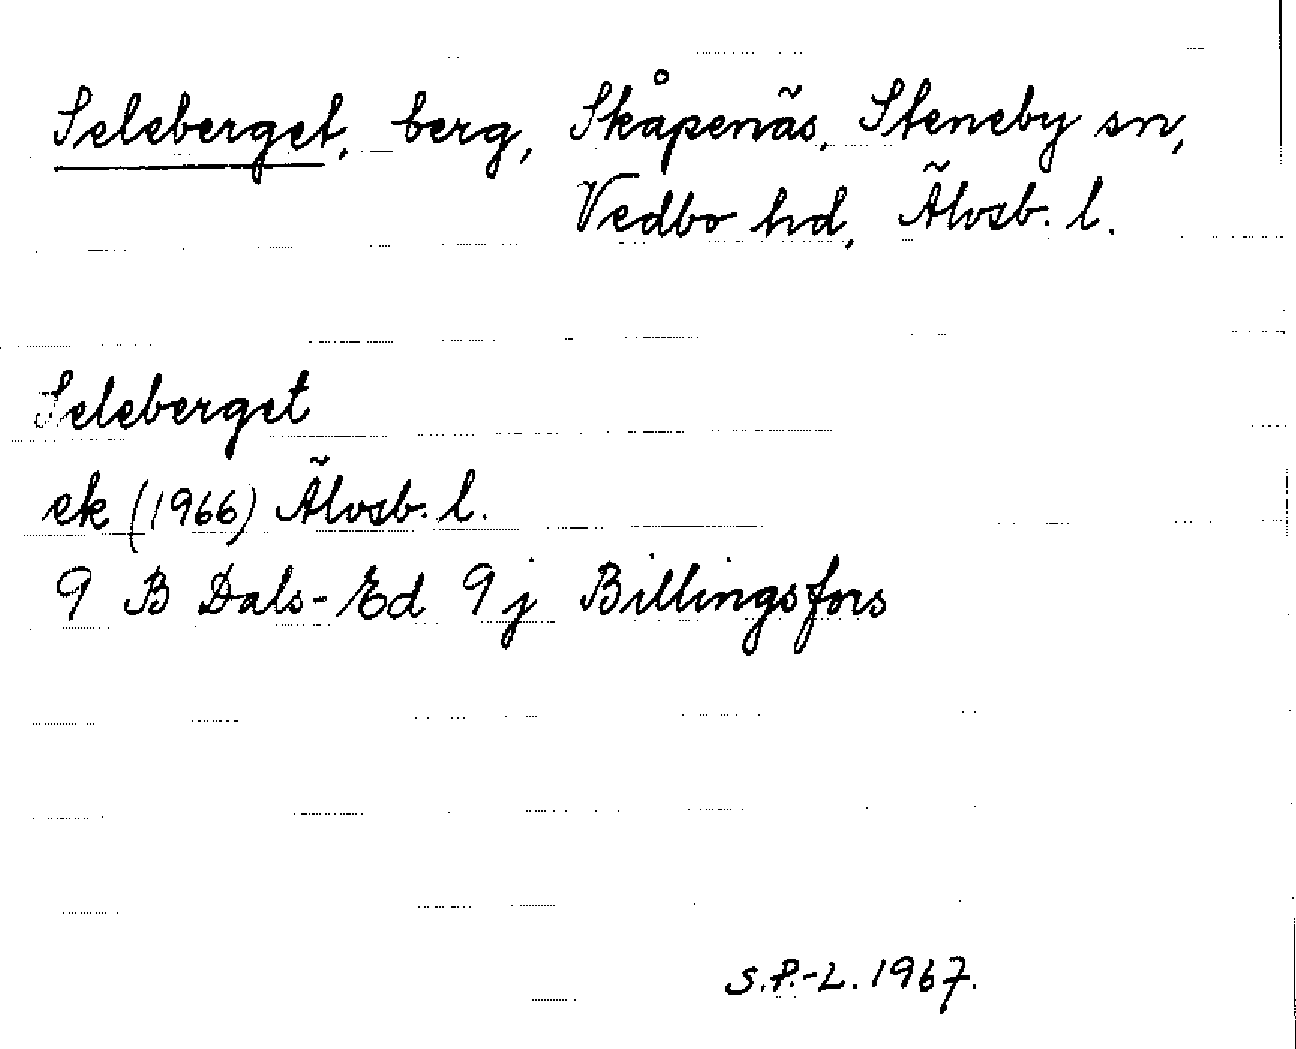 Seleberget, berg, Skåpenäs, Steneby sn,
Vedbo hd, Älvsb. l.
Seleberget
ek (1966) Älvsb. l.
9 B Dals-Ed 9 j Billingsfors
S.P.-L. 1967.